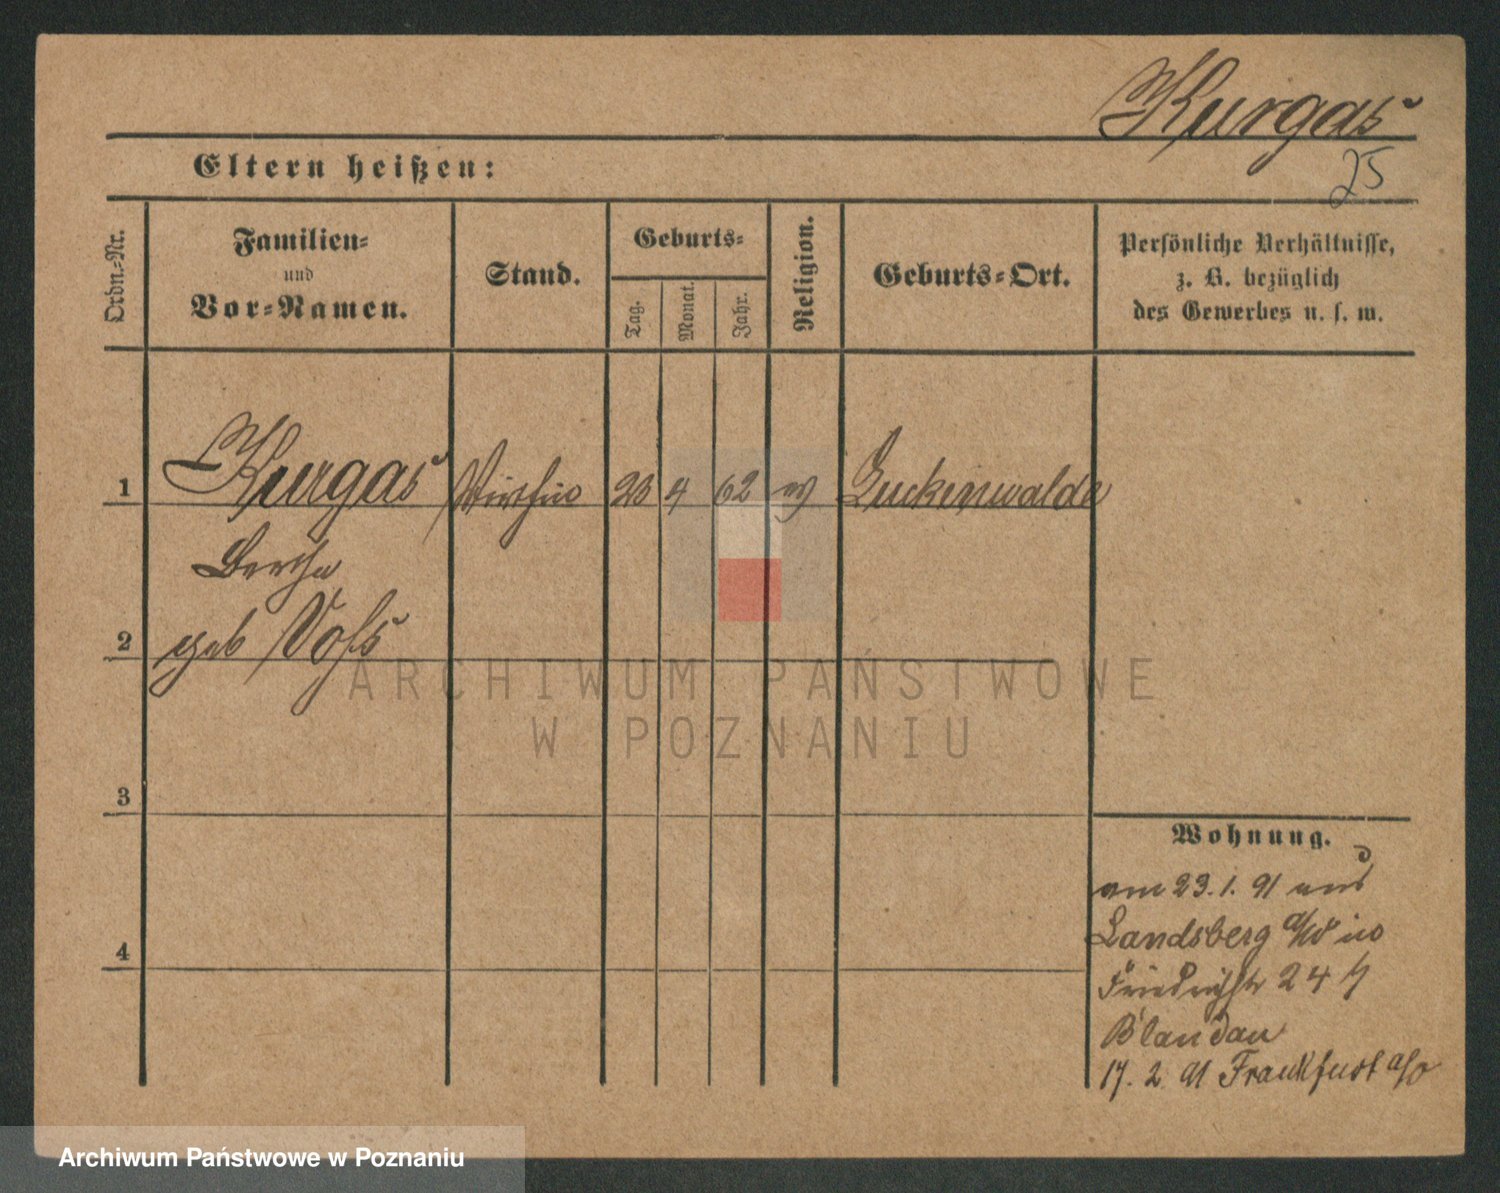 Kurgas
25
Eltern heißen:
Ordn.-Nr.
Familien-
und
Vor-Namen.
Stand.
Geburts-
Tag.
Monat.
Jahr.
Religion.
Geburts-Ort.
Persönliche Verhältnisse,
z. B. bezüglich
des Gewerbes u. s. w.
1 Kurgas 23 4 62 Luckenwalde
Bertha
2 geb Voss
3
4
Wohnung.
am 23. 1. 91 aus
Landsberg a/W in
Friedrichstr 24 b
Blandau
17. 2. 91 Frankfurt a/o
ARCHIWUM PAŃSTWOWE
W POZNANIU
Archiwum Państwowe w Poznaniu